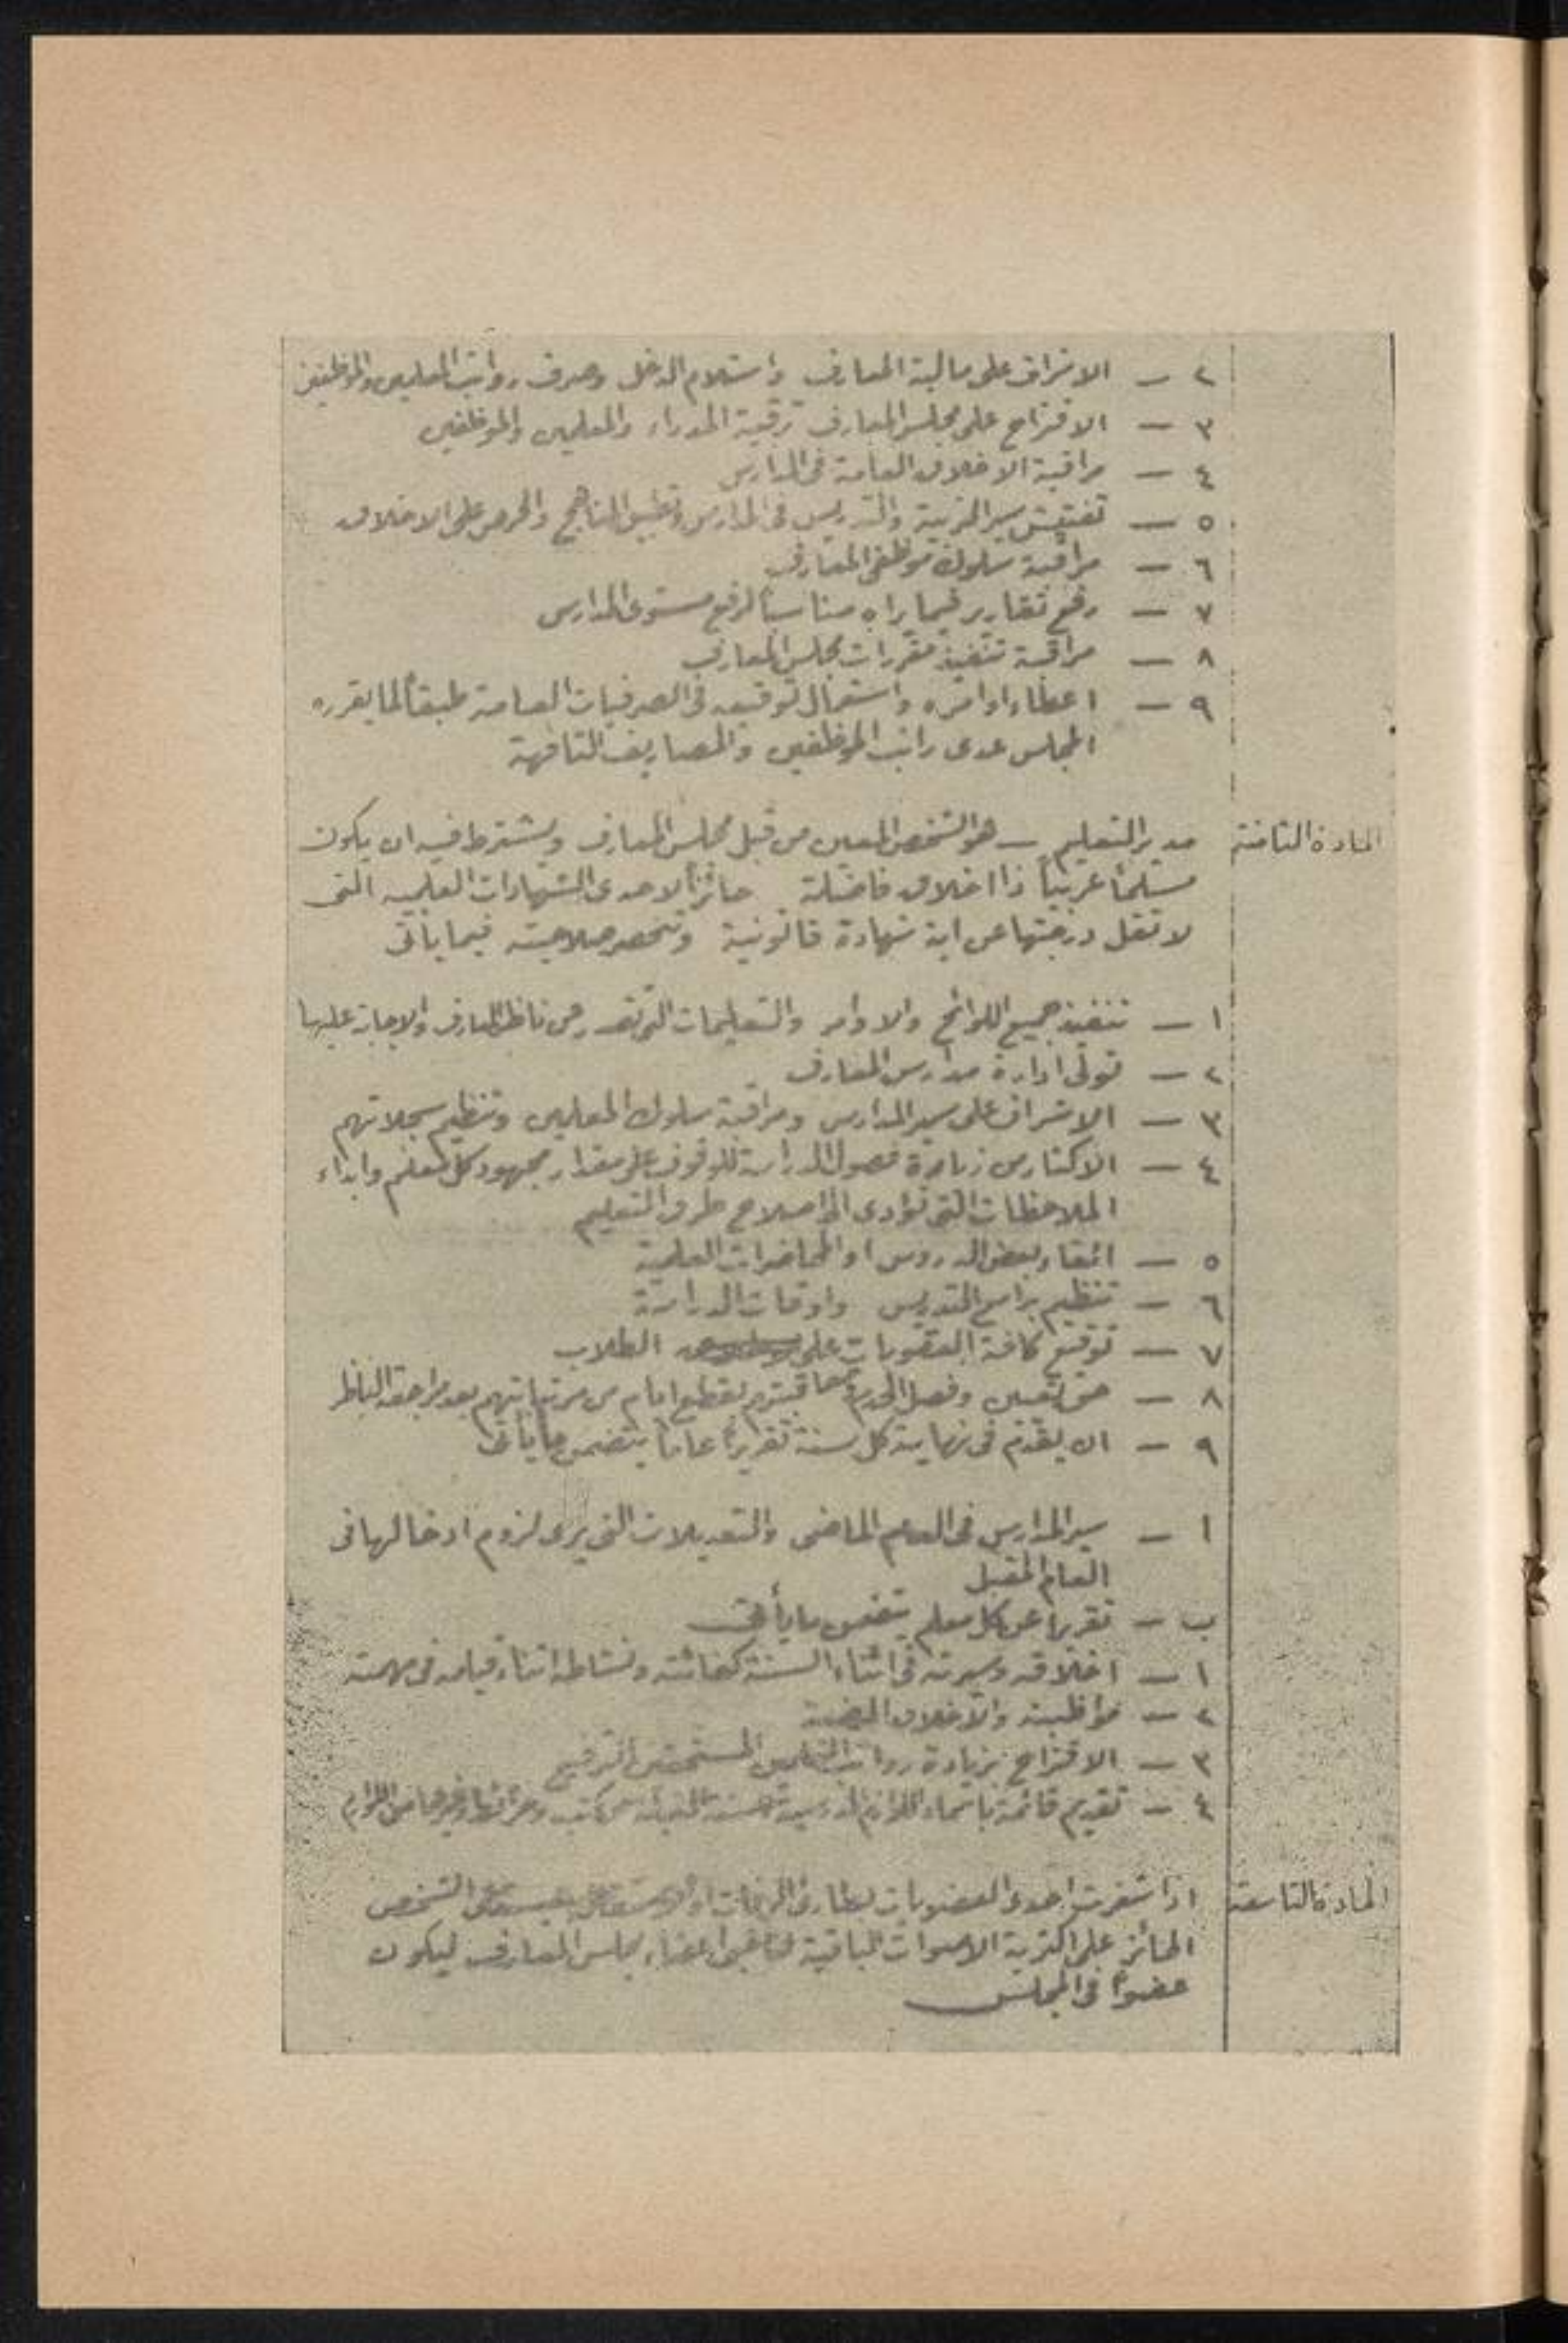 ٢ — الاشراف على مالية المعارف واستلام الدخل وصرف رواتب المعلمين والموظفين
٣ — الاقتراح على مجلس المعارف ترقية المدراء والمعلمين والموظفين
٤ — مراقبة الاخلاق العامة في المدارس
٥ — تفتيش سير التربية والتدريس في المدارس وتطبيق المناهج والحرص على الاخلاق
٦ — مراقبة سلوك موظفي المعارف
٧ — رفع تقارير فيما يراه مناسباً لرفع مستوى المدارس
٨ — مراقبة تنفيذ مقررات مجلس المعارف
٩ — اعطاء اوامره واستعمال توقيعه في الصرفيات العامة طبقاً لما يقرره
المجلس عدى راتب الموظفين والمصاريف التافهة
المادة الثامنة مدير التعليم — هو الشخص المعين من قبل مجلس المعارف ويشترط فيه ان يكون
مسلماً عربياً ذا اخلاق فاضلة حائزاً لاحدى الشهادات العلمية التي
لا تقل درجتها عن اية شهادة قانونية وتنحصر صلاحيته فيما يأتي
١ — تنفيذ جميع اللوائح والاوامر والتعليمات التي تصدر من ناظر المعارف والاجابة عليها
٢ — تولي ادارة مدارس المعارف
٣ — الاشراف على سير المدارس ومراقبة سلوك المعلمين وتنظيم سجلاتهم
٤ — الاكثار من زيارة فصول الدراسة للوقوف على مقدار مجهود كل معلم وابداء
الملاحظات التي تؤدى الى اصلاح طرق التعليم
٥ — القاء بعض الدروس او المحاضرات العلمية
٦ — تنظيم برامج التدريس واوقات الدراسة
٧ — توقيع كافة العقوبات على الطلاب
٨ — حق تعيين وفصل الخدم ومعاقبتهم بقطع ايام من مرتباتهم بعد مراجعة الناظر
٩ — ان يقدم في نهاية كل سنة تقريراً عاماً يتضمن ما يأتي
ا — سير المدارس في العام الماضي والتعديلات التي يرى لزوم ادخالها في
العام المقبل
ب — تقريراً عن كل معلم يتضمن ما يأتي
١ — اخلاقه وسيرته في اثناء السنة كفائته ونشاطه اثناء قيامه في مهمته
٢ — مواظبته والاخلاق
٣ — الاقتراح بزيادة رواتب المعلمين المستحقين الترفيع
٤ — تقديم قائمة باسماء اللوازم المدرسية من كتب وغيرها من اللوازم
المادة التاسعة اذا شغرت احدى العضويات بطارئ الشخص
الحائز على اكثرية الاصوات الباقية اعضاء مجلس المعارف ليكون
عضواً في المجلس